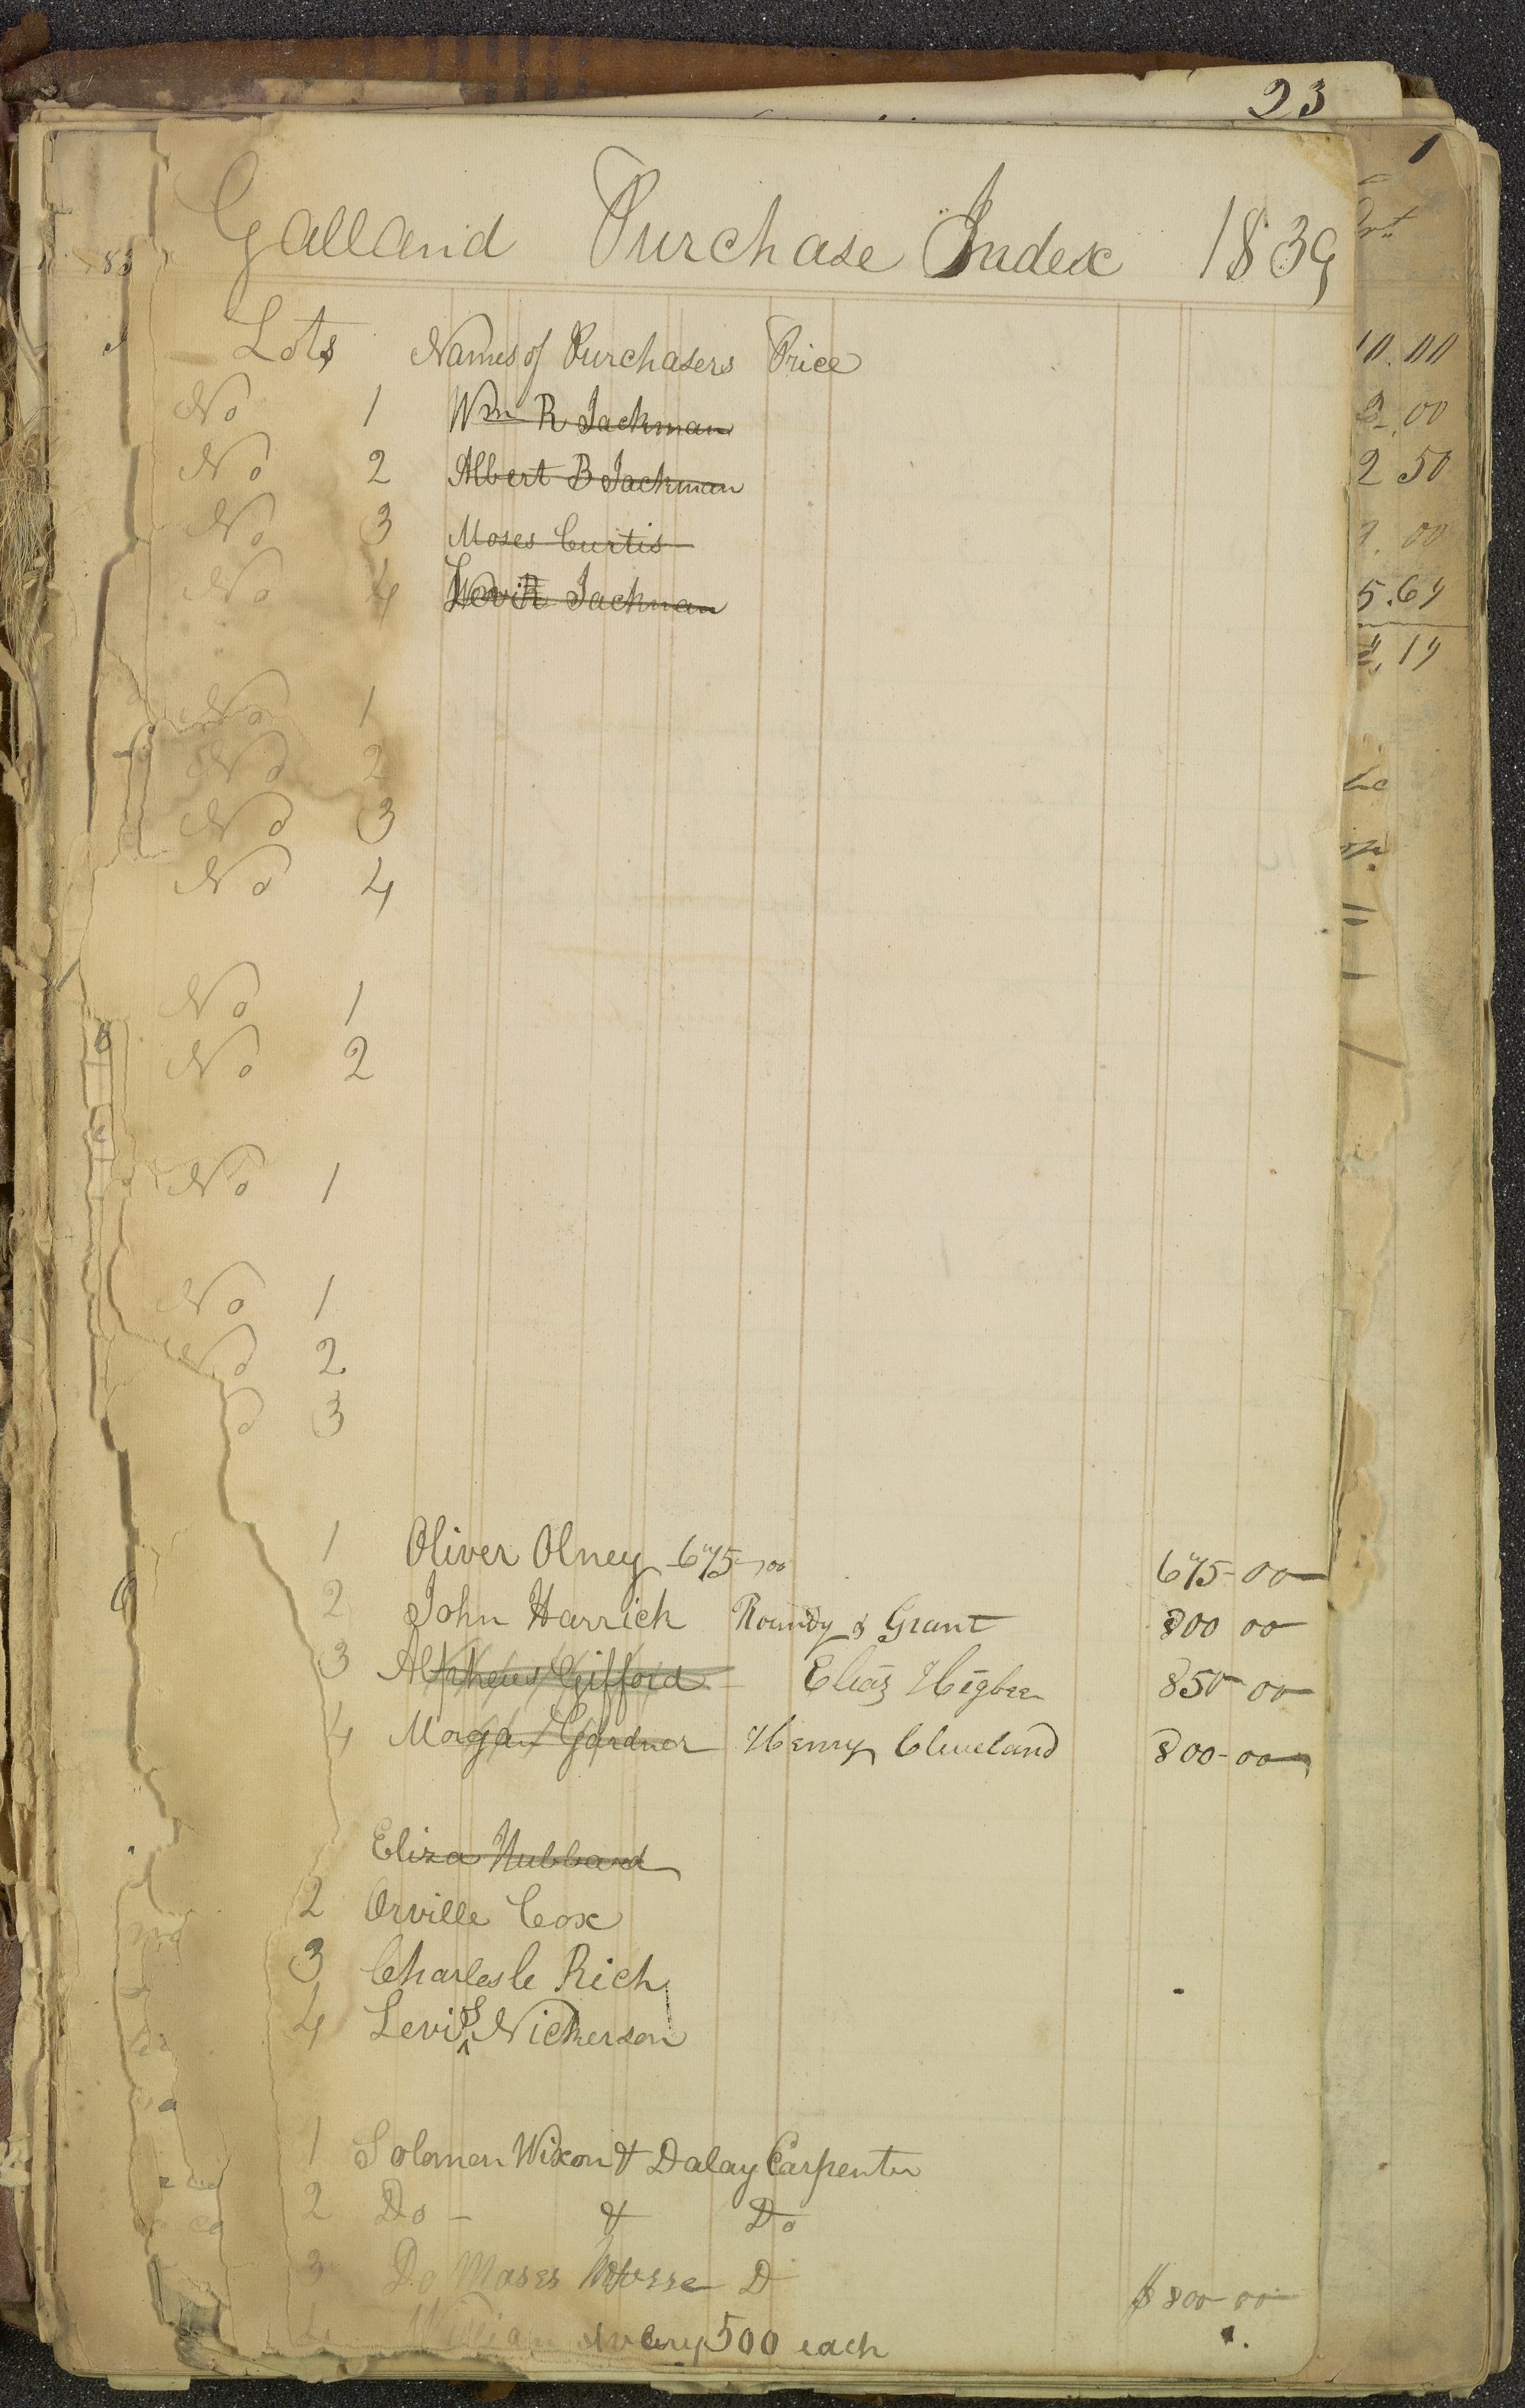 23
1
Galland Purchase Index 1839
Lots Names of Purchasers Price
No 1 Wm R Jackman
No 2 Albert B Jackman
No 3 Moses Curtis
No 4 Levi Jackman
No 1
No 2
No 3
No 4
No 1
No 2
No 1
No 1
No 2
3
1 Oliver Olney 675-00 675-00
2 John Harrick Roundy & Grant 800 00
3 Alpheus Gifford Elias Higbee 850-00
4 Morgan Gardner Henry Cleveland 800-00
Eliza Hubbard
2 Orville Cox
3 Charles C Rich
4 Levi S Nickerson
1 Solomen Wixon & Dalay Carpenter
2 Do - & Do
3 Do Moses D $800-00
500 each
10.00
2.00
2 50
00
5.69
19